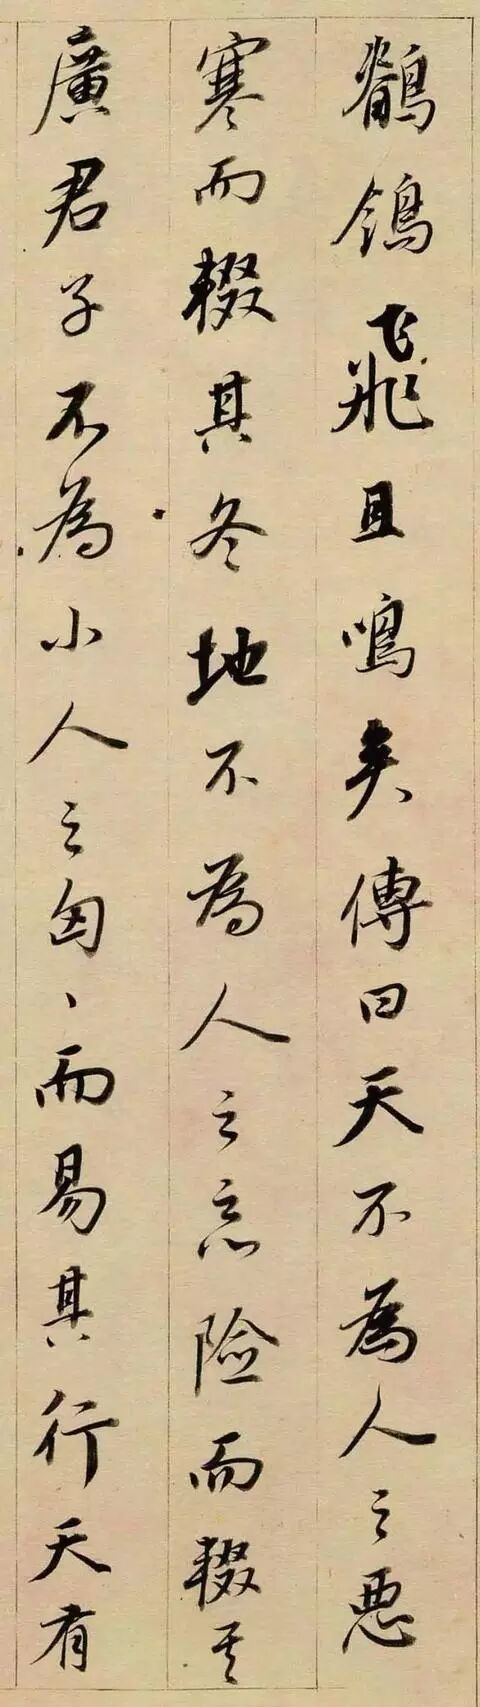 鶺鴒飛且鳴矣傳曰天不為人之惡
寒而輟其冬地不為人之惡險而輟其
廣君子不為小人之匈〻而易其行天有